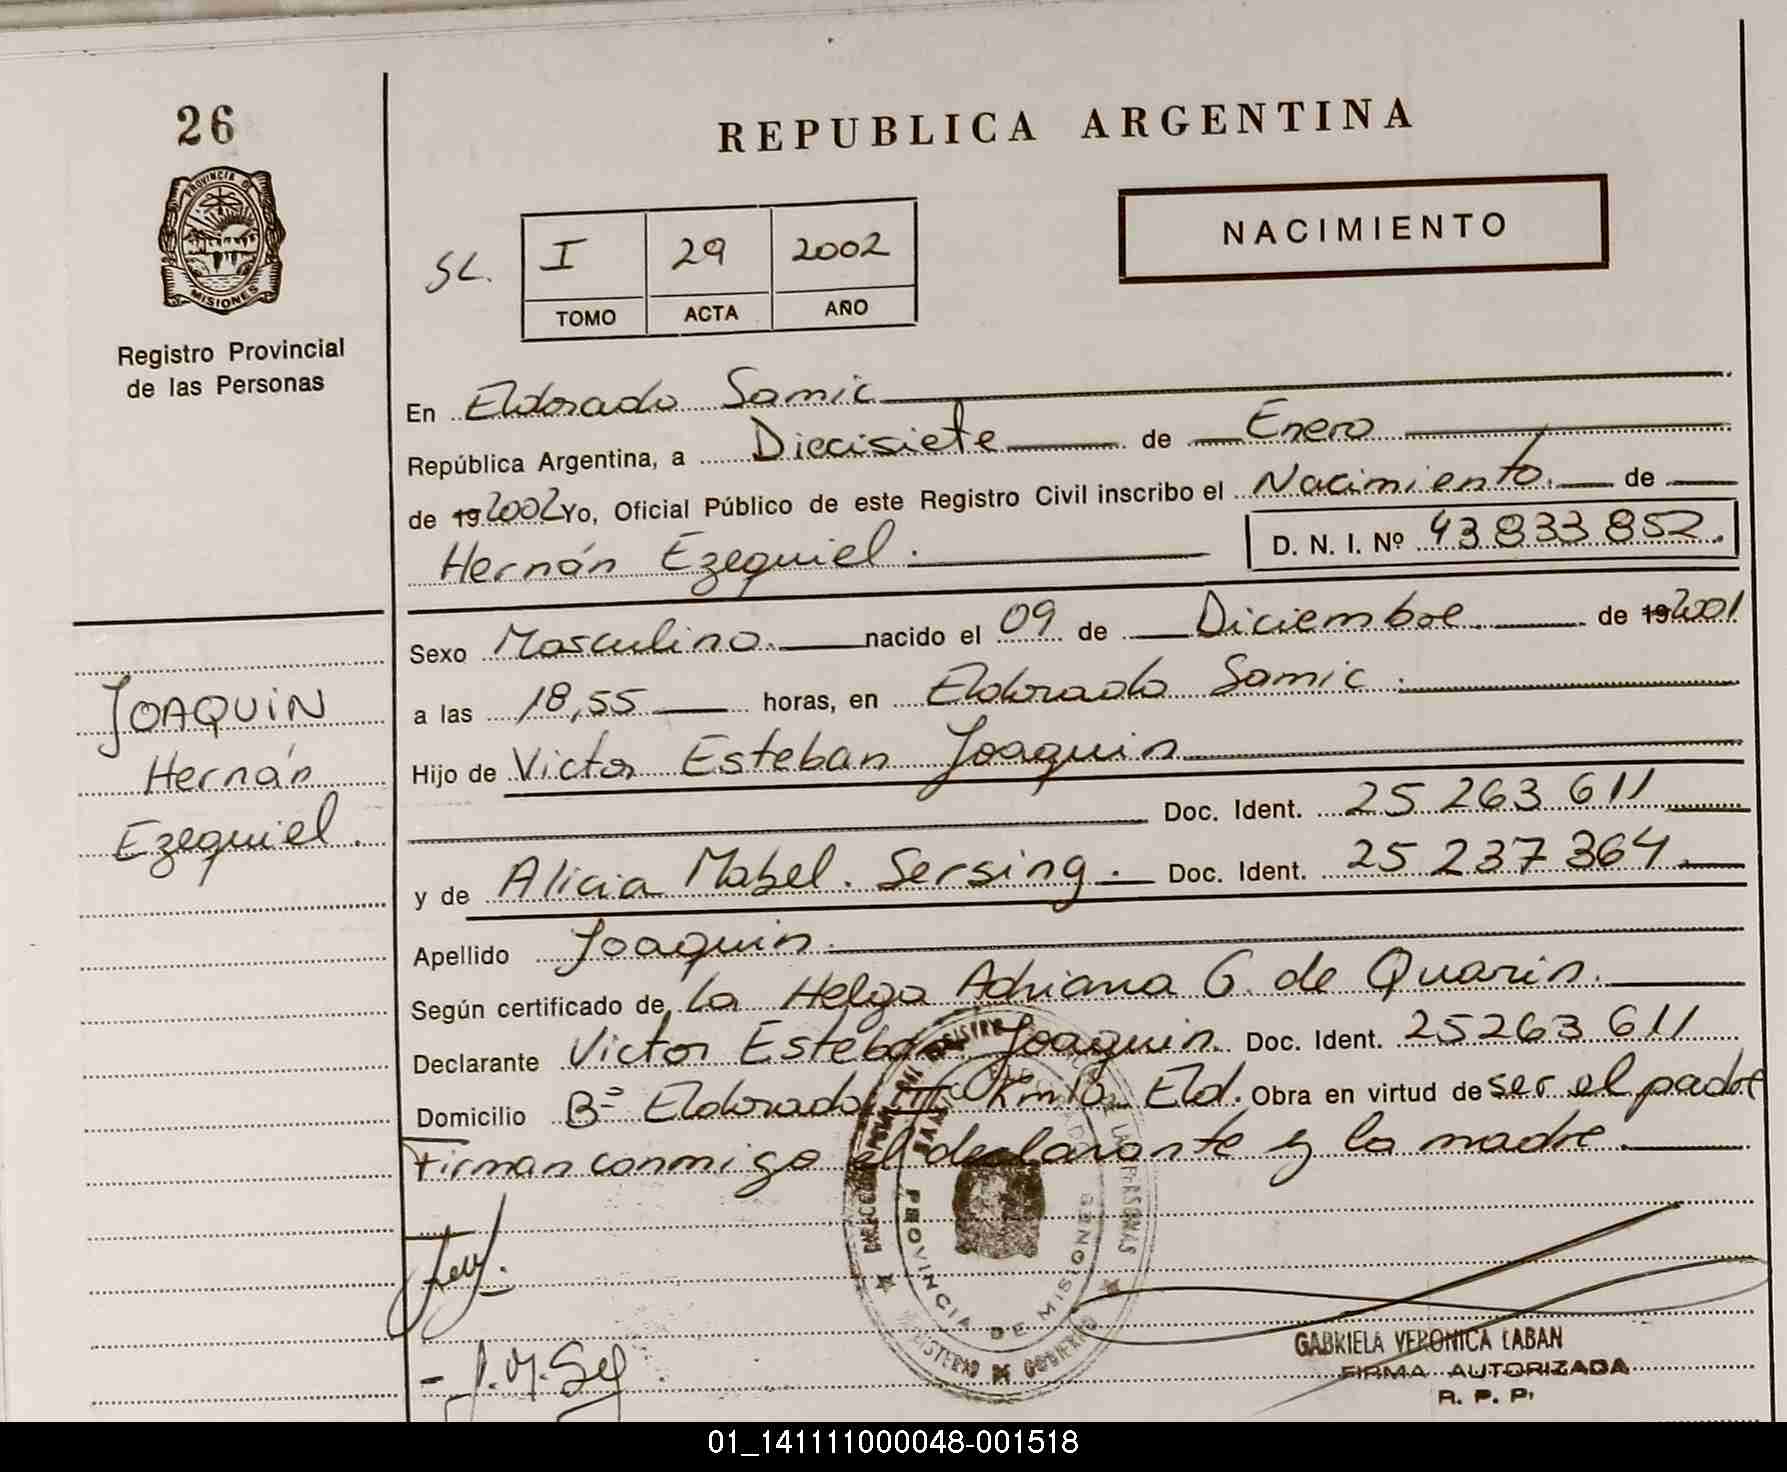 26
PROVINCIA DE
MISIONES
Registro Provincial
de las Personas
REPUBLICA ARGENTINA
NACIMIENTO
SL. I 29 2002
TOMO ACTA AÑO
En Eldorado Samic
República Argentina, a Diecisiete de Enero
de 19 2002 Yo, Oficial Público de este Registro Civil inscribo el Nacimiento. de
Hernán Ezequiel. D. N. I. Nº 43 833 852.
Sexo Masculino. nacido el 09 de Diciembre. de 19 2001
a las 18,55 horas, en Eldorado Samic.
Hijo de Victor Esteban Joaquin
Doc. Ident. 25 263 611
y de Alicia Mabel. Sersing. Doc. Ident. 25 237 364
Apellido Joaquin.
Según certificado de La Helga Adriana G. de Quarin.
Declarante Victor Esteban Joaquin. Doc. Ident. 25263 611
Domicilio Bº Eldorado III Km 10 Eld. Obra en virtud de ser el padre
Firman conmigo el declarante y la madre.
JOAQUIN
Hernán
Ezequiel.
PROVINCIA DE MISIONES
MINISTERIO DE GOBIERNO
GABRIELA VERONICA LABAN
FIRMA AUTORIZADA
R. P. P.
01_141111000048-001518